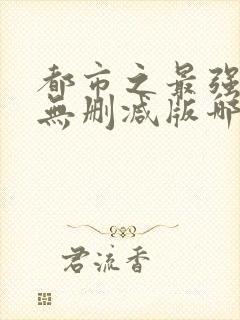 都市之最强
無删减版哪
君流香